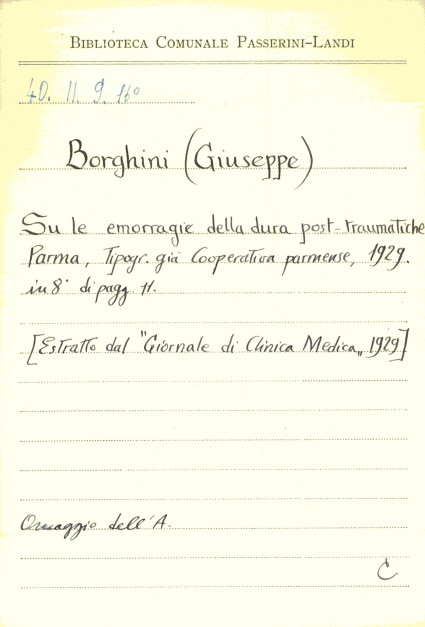 BIBLIOTECA COMUNALE PASSERINI-LANDI
40. 11. 9. 16°
Borghini (Giuseppe)
Su le emorragie della dura post-traumatiche
Parma, Tipogr. già Cooperativa parmense, 1929.
in 8° di pagg 11.
[Estratto dal "Giornale di Clinica Medica„ 1929]
Omaggio dell'A.
C